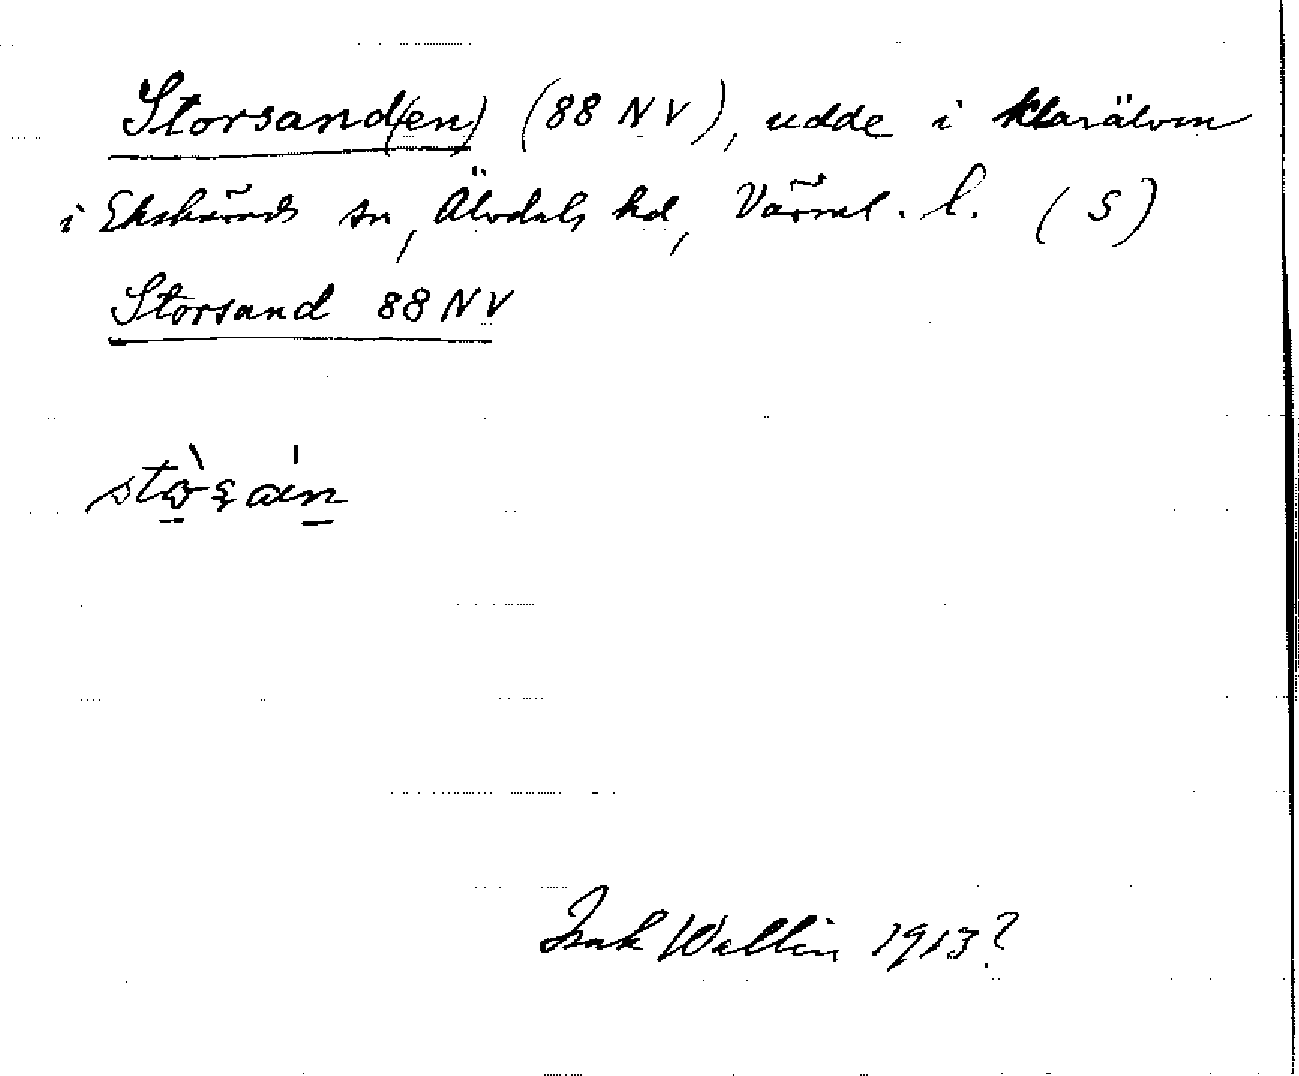 Storsand(en) (88 NV), udde i Klarälven
i Ekshärads sn, Älvdals hd, Värml. l. (S)
Storsand 88 NV
Isak Wallin 1913?